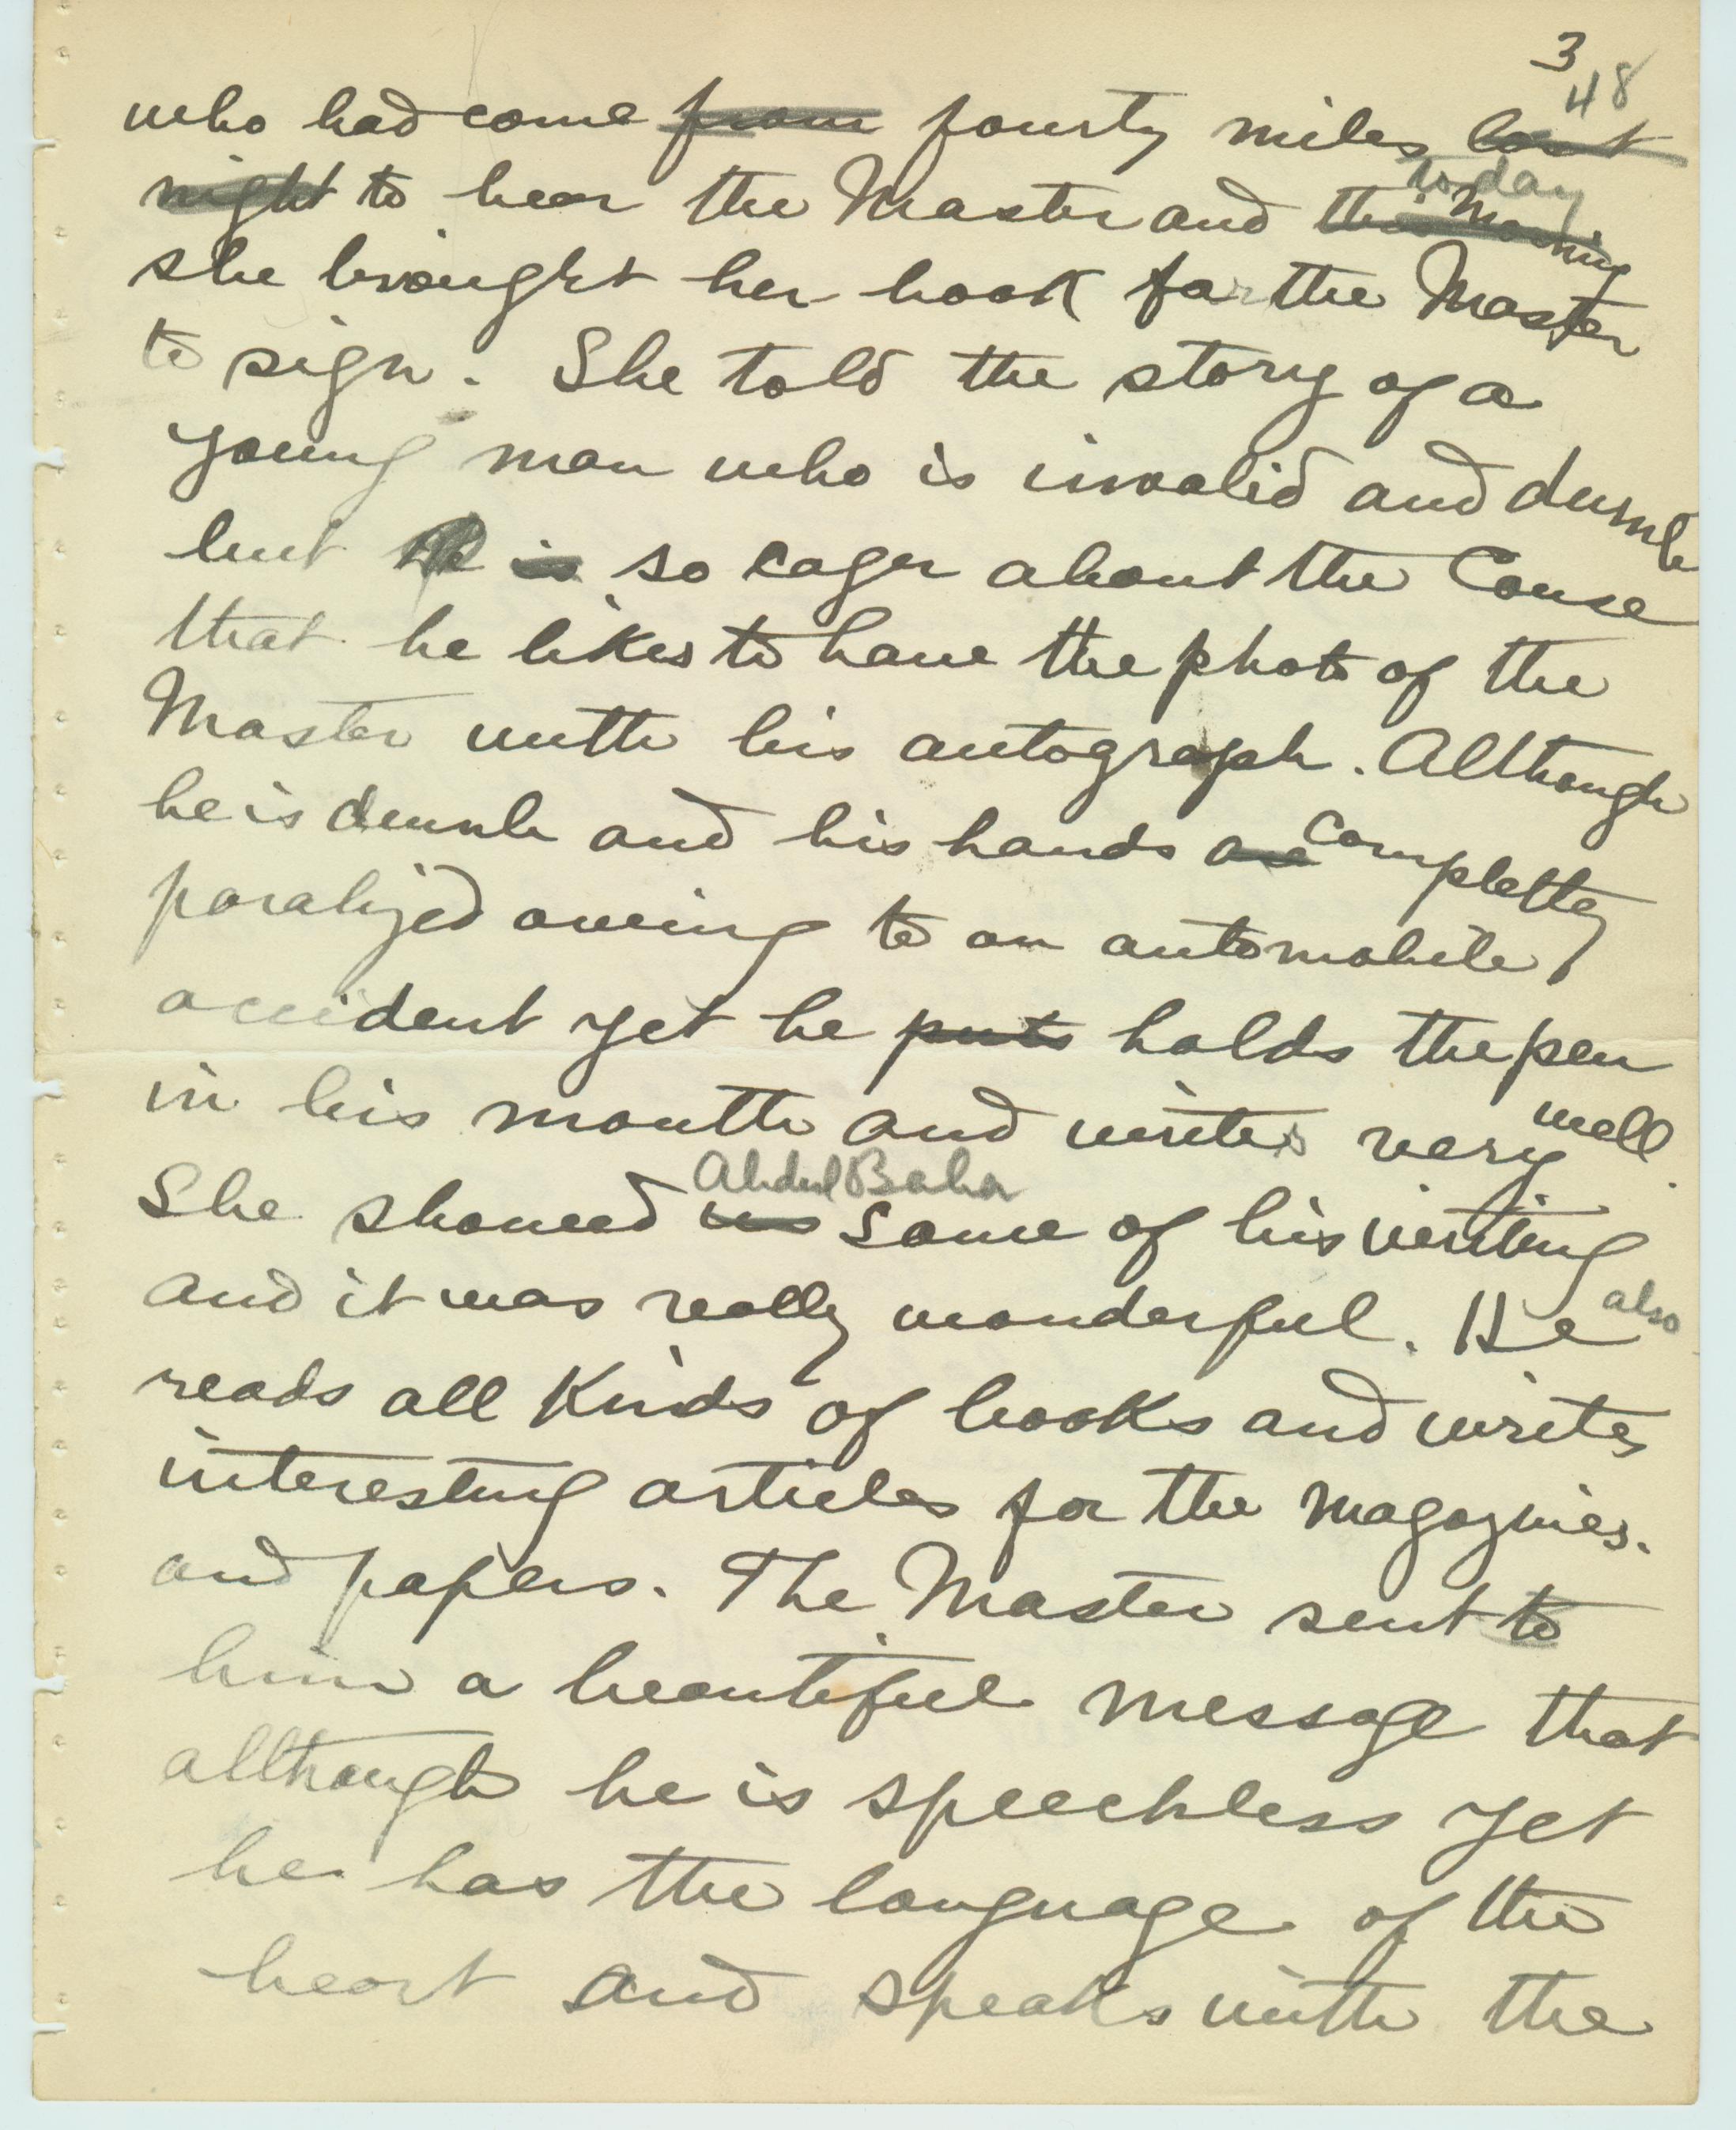 3
48
who had come from fourty miles last
today
night to hear the Master and this Morning
she brought her book for the Master
to sign. She told the story of a
young man who is invalid and dumb
but is so eager about the Cause
that he likes to have the photo of the
Master with his autograph. Although
he is dumb and his hands are completley
paralized owing to an automobile
accident yet he puts holds the pen
in his mouth and writes very well.
Abdul Baha
She showed us some of his writing
and it was really wonderful. He also
reads all kinds of books and writes
interesting articles for the magazines.
and papers. The Master sent to
him a beautiful message that
although he is speechless yet
he has the language of the
heart and speaks with the